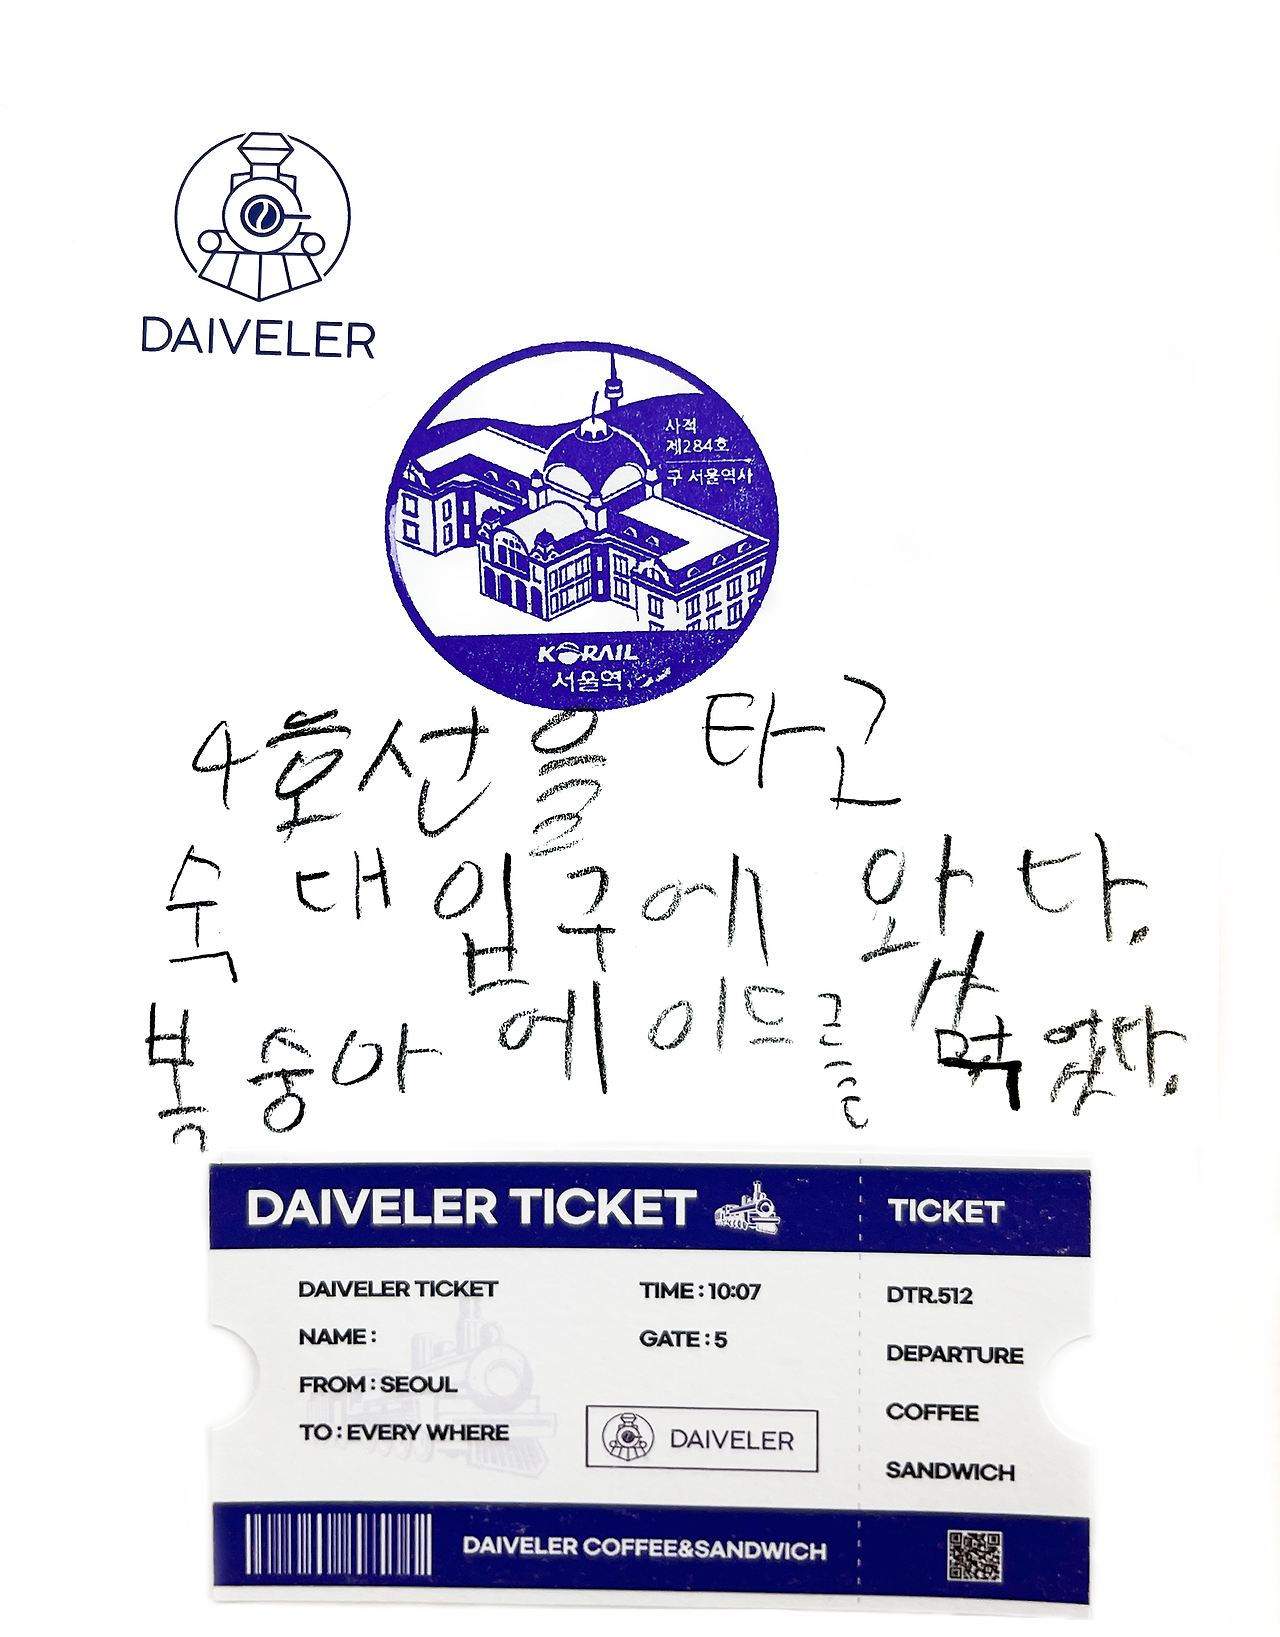 DAIVELER
사적
제284호
구 서울역사
KORAIL
서울역
4호선을 타고
숙대입구에 왔다.
복숭아 에이드를 먹었다.
DAIVELER TICKET
TICKET
DAIVELER TICKET
NAME :
FROM : SEOUL
TO : EVERY WHERE
TIME : 10:07
GATE : 5
DAIVELER
DTR.512
DEPARTURE
COFFEE
SANDWICH
DAIVELER COFFEE&SANDWICH